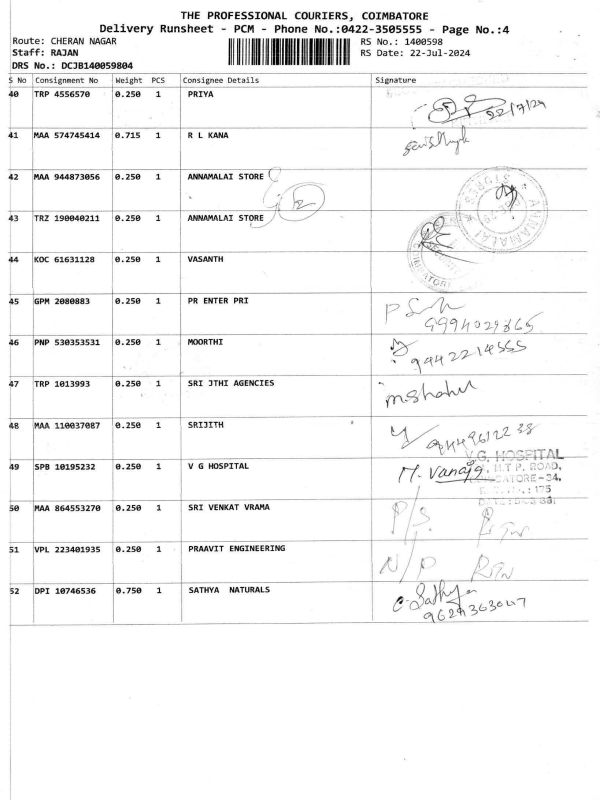 THE PROFESSIONAL COURIERS, COIMBATORE
Delivery Runsheet - PCM - Phone No.:0422-3505555 - Page No.:4
Route: CHERAN NAGAR RS No.: 1400598
Staff: RAJAN RS Date: 22-Jul-2024
DRS No.: DCJB140059804
S No Consignment No Weight PCS Consignee Details Signature
40 TRP 4556570 0.250 1 PRIYA 22/7/24
41 MAA 574745414 0.715 1 R L KANA
42 MAA 944873056 0.250 1 ANNAMALAI STORE
ANNAMALAI STORES
43 TRZ 190040211 0.250 1 ANNAMALAI STORE
44 KOC 61631128 0.250 1 VASANTH
45 GPM 2080883 0.250 1 PR ENTER PRI
9994029865
46 PNP 530353531 0.250 1 MOORTHI 9442214555
47 TRP 1013993 0.250 1 SRI JTHI AGENCIES
48 MAA 110037087 0.250 1 SRIJITH
49 SPB 10195232 0.250 1 V G HOSPITAL M. Vanaja
V.G. HOSPITAL
M.T.P. ROAD,
50 MAA 864553270 0.250 1 SRI VENKAT VRAMA P/S. Rtn
51 VPL 223401935 0.250 1 PRAAVIT ENGINEERING N/P Rtn
52 DPI 10746536 0.750 1 SATHYA NATURALS C. Sathya